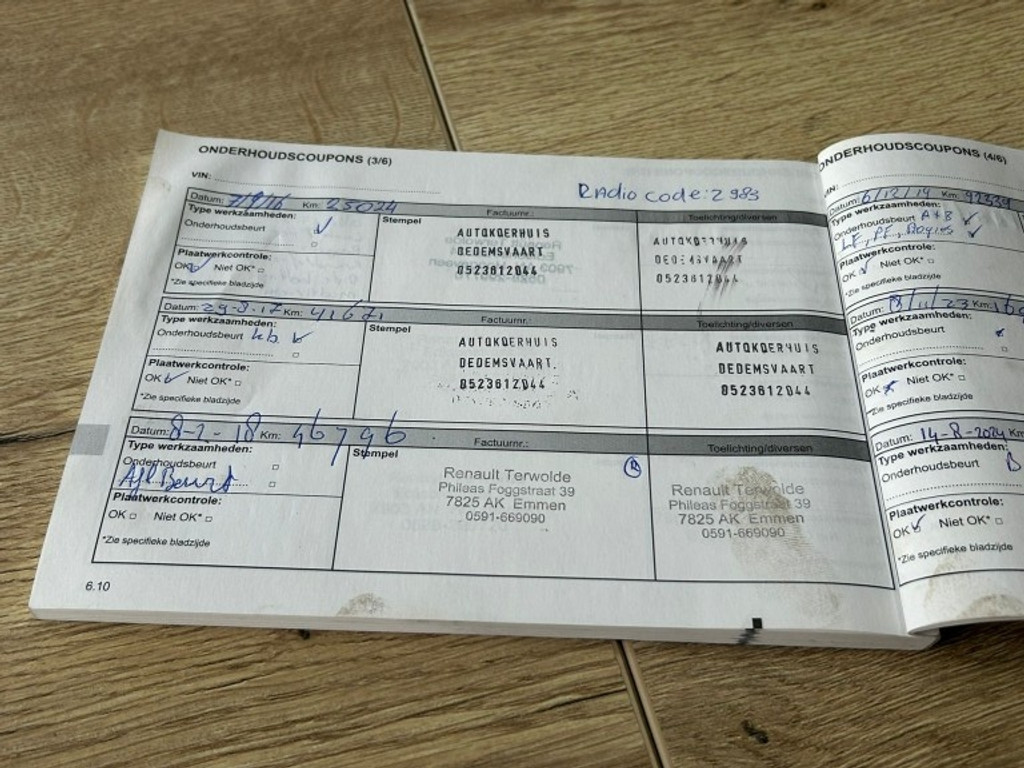 ONDERHOUDSCOUPONS (3/6)
VIN:
Radio code: 2983
Datum: 7/9/16 Km: 25024
Factuurnr.:
Toelichting/diversen
Type werkzaamheden:
Onderhoudsbeurt
Plaatwerkcontrole:
OK Niet OK*
*Zie specifieke bladzijde
Stempel
AUTOKOERHUIS
DEDEMSVAART
0523612044
AUTOKOERHUIS
DEDEMSVAART
0523612044
Datum: 29-8-17 Km: 41671
Factuurnr.:
Toelichting/diversen
Type werkzaamheden:
Onderhoudsbeurt
Plaatwerkcontrole:
OK Niet OK*
*Zie specifieke bladzijde
Stempel
AUTOKOERHUIS
DEDEMSVAART.
0523612044
AUTOKOERHUIS
DEDEMSVAART
0523612044
Datum: 8-2-18 Km: 46796
Factuurnr.:
Toelichting/diversen
Type werkzaamheden:
Onderhoudsbeurt
Afl Beurt
Plaatwerkcontrole:
OK Niet OK*
*Zie specifieke bladzijde
Stempel
Renault Terwolde
Phileas Foggstraat 39
7825 AK Emmen
0591-669090
Renault Terwolde
Phileas Foggstraat 39
7825 AK Emmen
0591-669090
6.10
ONDERHOUDSCOUPONS (4/6)
Datum: 6/12/19 Km: 92339
Type werkzaamheden:
Onderhoudsbeurt A+B
LF, PF, Bogies
Plaatwerkcontrole:
OK Niet OK*
*Zie specifieke bladzijde
Datum: 13/11/23 Km:
Type werkzaamheden:
Onderhoudsbeurt
Plaatwerkcontrole:
OK Niet OK*
*Zie specifieke bladzijde
Datum: 14-8-2024 Km
Type werkzaamheden:
Onderhoudsbeurt B
Plaatwerkcontrole:
OK Niet OK*
*Zie specifieke bladzijde